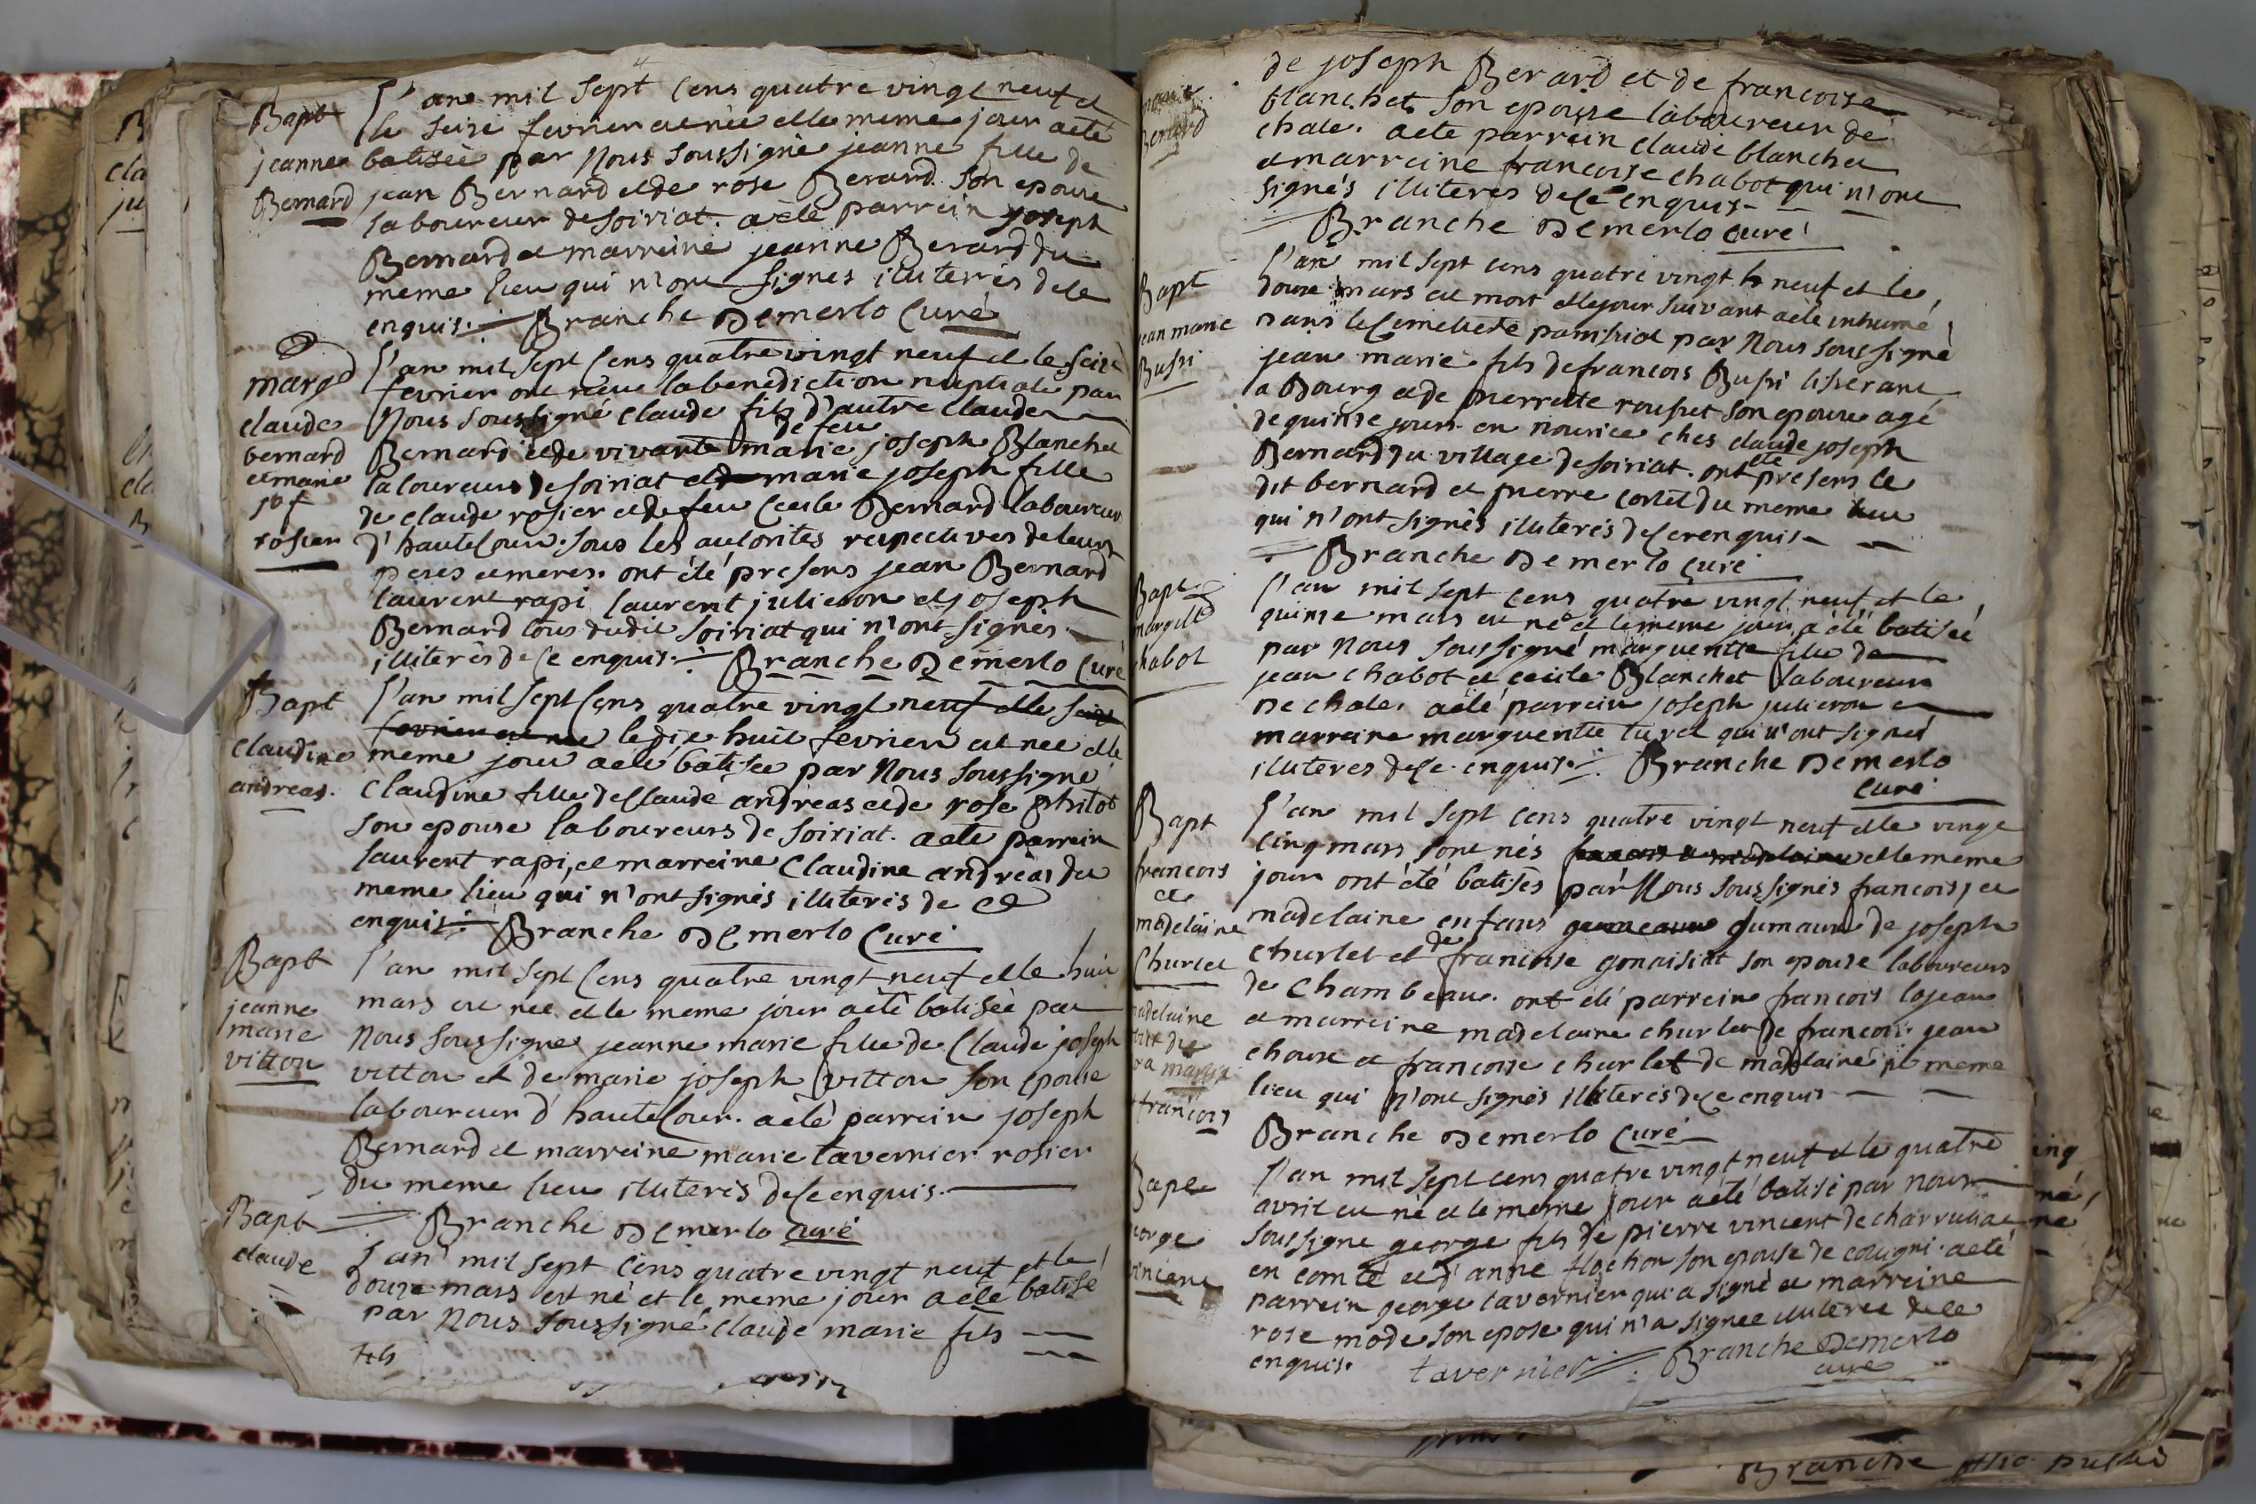 Bapt
jeanne
Bernard
L'an mil sept cens quatre vingt neuf et
le seize fevrier est née et le meme jour a eté
batisée par Nous soussigné jeanne fille de
jean Bernard et de rose Berard son epouse
laboureur de soiriat. a été parrein joseph
Bernard et marreine jeanne Berard du
meme lieu qui n'ont signés illiterés de ce
enquis. Branche Demerlo Curé
marg
claude
bernard
et marie
jpf
rosier
L'an mil sept cens quatre vingt neuf et le seize
fevrier ont reçu la benediction nuptiale par
Nous soussigné claude fils d'autre claude
de feu
Bernard et de vivante marie joseph Blanchet
laboureurs de soiriat et de marie joseph fille
de claude rosier et de feu Cecile Bernard laboureur
d'hautecour. sous les autorités respectives de leurs
peres et meres. ont été presens jean Bernard
laurent rapi laurent julieron et joseph
Bernard tous dudit soiriat qui n'ont signés
illiterés de ce enquis. Branche Demerlo Curé
Bapt
Claudine
andreas.
L'an mil sept cens quatre vingt neuf et le seize
fevrier est née le dix huit fevrier est née et le
meme jour a eté batisée par Nous soussigné
Claudine fille de Claude andreas et de rose philot
son epouse laboureurs de soiriat. a eté parrein
laurent rapi, et marreine Claudine andréas du
meme lieu qui n'ont signés illiterés de ce
enquis. Branche Demerlo Curé
Bapt
jeanne
marie
vitton
L'an mil sept cens quatre vingt neuf et le huit
mars est née et le meme jour a été batisée par
Nous soussigné jeanne marie fille de Claude joseph
vitton et de marie joseph vitton son epouse
laboureur d'hautecour. a été parrein joseph
Bernard et marreine marie tavernier rosier
du meme lieu illiterés de ce enquis.
Branche Demerlo curé
Bapt
claude
L'an mil sept cens quatre vingt neuf et le
douze mars est né et le meme jour a eté batisé
par Nous soussigné claude marie fils
fils
marie
Berard
de joseph Berard et de francoise
blanchet son epouse laboureur de
chale. a eté parrein claude blanchet
et marreine francoise chabot qui n'ont
signés illiterés de ce enquis
Branche Demerlo curé
Bapt
jean marie
Bussi
L'an mil sept cens quatre vingt neuf et le
douze mars est mort et le jour suivant a été inhumé
dans le Cimetiere paroissial par Nous soussigné
jean marie fils de francois Bussi tisserant
a Bourg et de pierrette rousset son epouse agé
de quinze jours en nourice ches claude joseph
Bernard du village de soiriat. ont eté presens le
dit bernard et pierre cortet du meme lieu
qui n'ont signés illiterés de ce enquis
Branche Demerlo curé
Bapt
margtte
chabot
L'an mil sept cens quatre vingt neuf et le
quinze mars est né et le meme jour a été batisée
par Nous soussigné marguerite fille de
jean chabot et cecile Blanchet laboureurs
de chale. a été parrein joseph julieron et
marreine marguerite turet qui n'ont signés
illiteres de ce enquis. Branche Demerlo
curé
Bapt
francois
et
madelaine
Churlet
L'an mil sept cens quatre vingt neuf et le vingt
cinq mars sont nés et le meme
jour ont été batisés par Nous soussignés francois, et
madelaine enfans gemeaux jumaux de joseph
churlet et de francoise gonaisiat son epouse laboureurs
de Chambeau. ont été parrein francois lojean
et marreine madelaine churlet de francois. jean
choux et francoise churlet de madelaine du meme
lieu qui n'ont signés illiterés de ce enquis
Branche Demerlo Curé
Bapt
george
vincent
L'an mil sept cens quatre vingt neuf et le quatre
avril est né et le meme jour a eté batisé par nous
soussigné george fils de pierre vincent de charrusiat
en comté et d'anne flochon son epouse de coligni. a eté
parrein george tavernier qui a signé et marreine
rose mode son epose qui n'a signée illiterée de ce
enquis. tavernier Branche Demerlo
curé